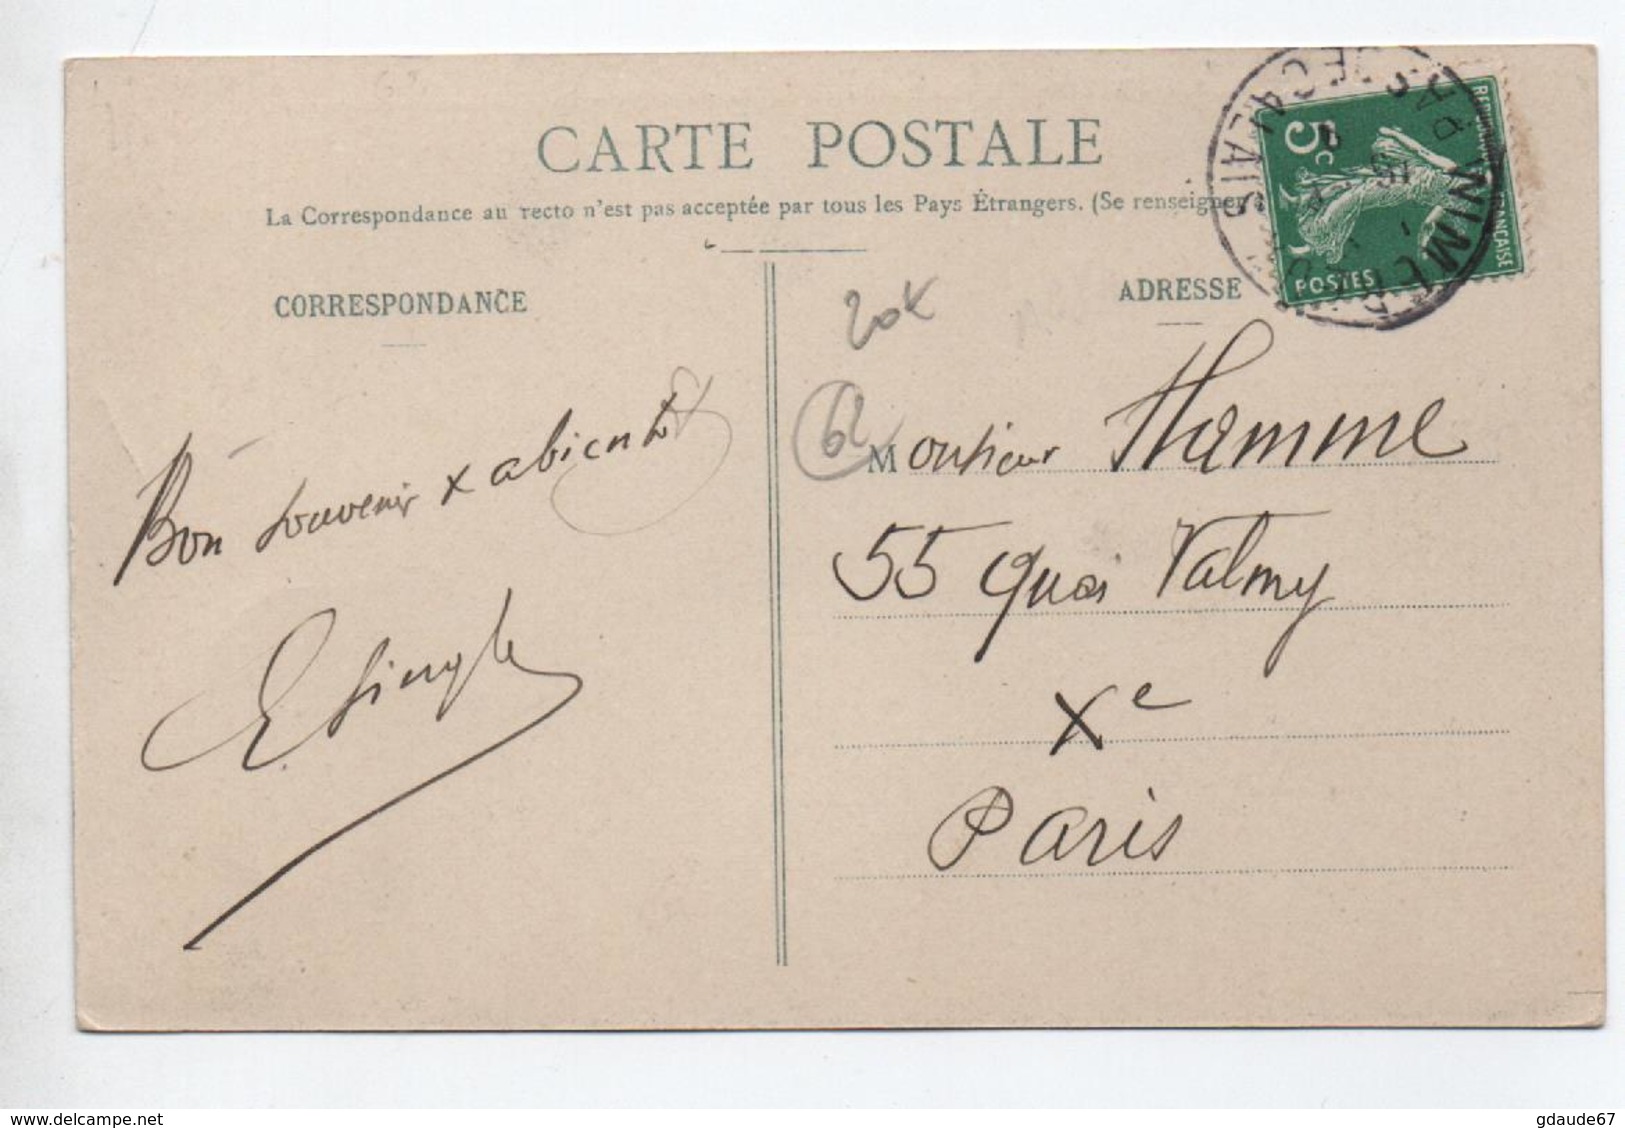 CARTE POSTALE
La Correspondance au recto n'est pas acceptée par tous les Pays Étrangers. (Se renseigner
CORRESPONDANCE
Bon souvenir x abientôt
E. Single
ADRESSE
20k
Monsieur Hamme
55 Quai Valmy
Xe
Paris
5c
POSTES
WIMEREUX
PAS DE CALAIS
www.delcampe.net
gdaude67